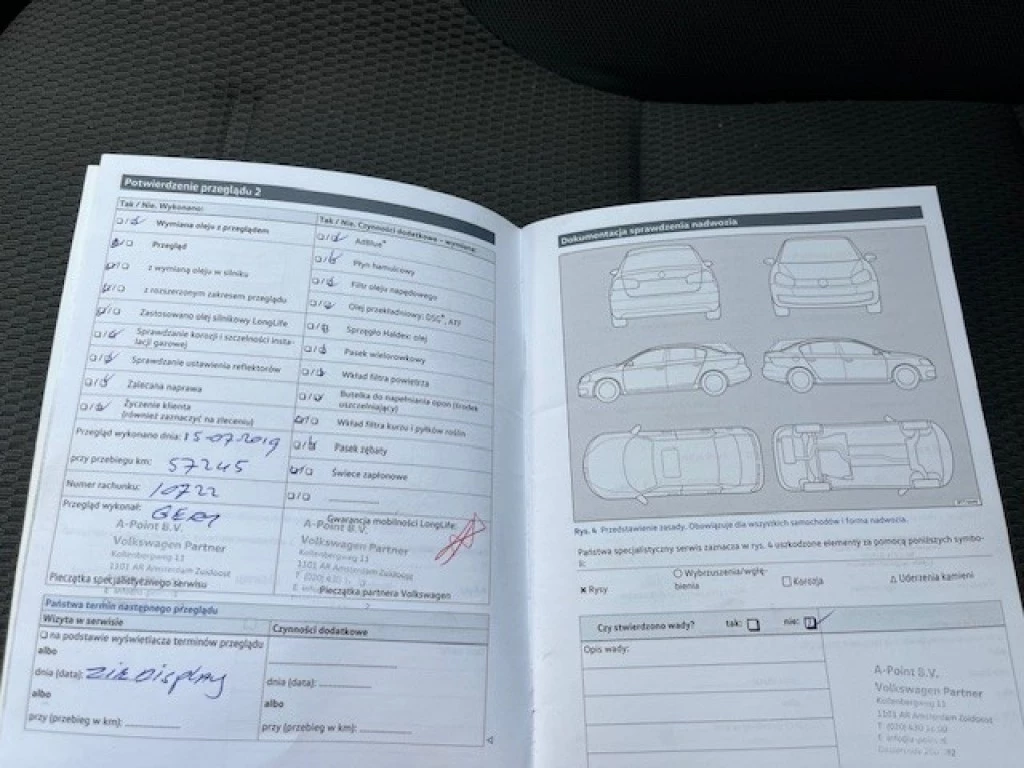 Potwierdzenie przeglądu 2
Tak / Nie. Wykonano:
Wymiana oleju z przeglądem
Przegląd
z wymianą oleju w silniku
z rozszerzonym zakresem przeglądu
Zastosowano olej silnikowy LongLife
Sprawdzanie korozji i szczelności insta-
lacji gazowej
Sprawdzanie ustawienia reflektorów
Zalecana naprawa
Życzenie klienta
(również zaznaczyć na zleceniu)
Przegląd wykonano dnia: 15-07-2019
przy przebiegu km: 57245
Numer rachunku: 10722
Przegląd wykonał:
A-Point B.V.
Volkswagen Partner
Kollenbergweg 11
1101 AR Amsterdam Zuidoost
Pieczątka specjalistycznego serwisu
Tak / Nie. Czynności dodatkowe – wymiana:
AdBlue®
Płyn hamulcowy
Filtr oleju napędowego
Olej przekładniowy: DSG®, ATF
Sprzęgło Haldex: olej
Pasek wielorowkowy
Wkład filtra powietrza
Butelka do napełniania opon (środek
uszczelniający)
Wkład filtra kurzu i pyłków roślin
Pasek zębaty
Świece zapłonowe
Gwarancja mobilności LongLife
A-Point B.V.
Volkswagen Partner
Kollenbergweg 11
1101 AR Amsterdam Zuidoost
Pieczątka partnera Volkswagen
Państwa termin następnego przeglądu
Wizyta w serwisie
na podstawie wyświetlacza terminów przeglądu
albo
dnia (data): Zie Display
albo
przy (przebieg w km):
Czynności dodatkowe
dnia (data):
albo
przy (przebieg w km):
Dokumentacja sprawdzenia nadwozia
Rys. 4 Przedstawienie zasady. Obowiązuje dla wszystkich samochodów i forma nadwozia.
Państwa specjalistyczny serwis zaznacza w rys. 4 uszkodzone elementy za pomocą poniższych symbo-
li:
x Rysy
Wybrzuszenia/wgłę-
bienia
Korozja
Uderzenia kamieni
Czy stwierdzono wady? tak: nie:
Opis wady:
A-Point B.V.
Volkswagen Partner
Kollenbergweg 11
1101 AR Amsterdam Zuidoost